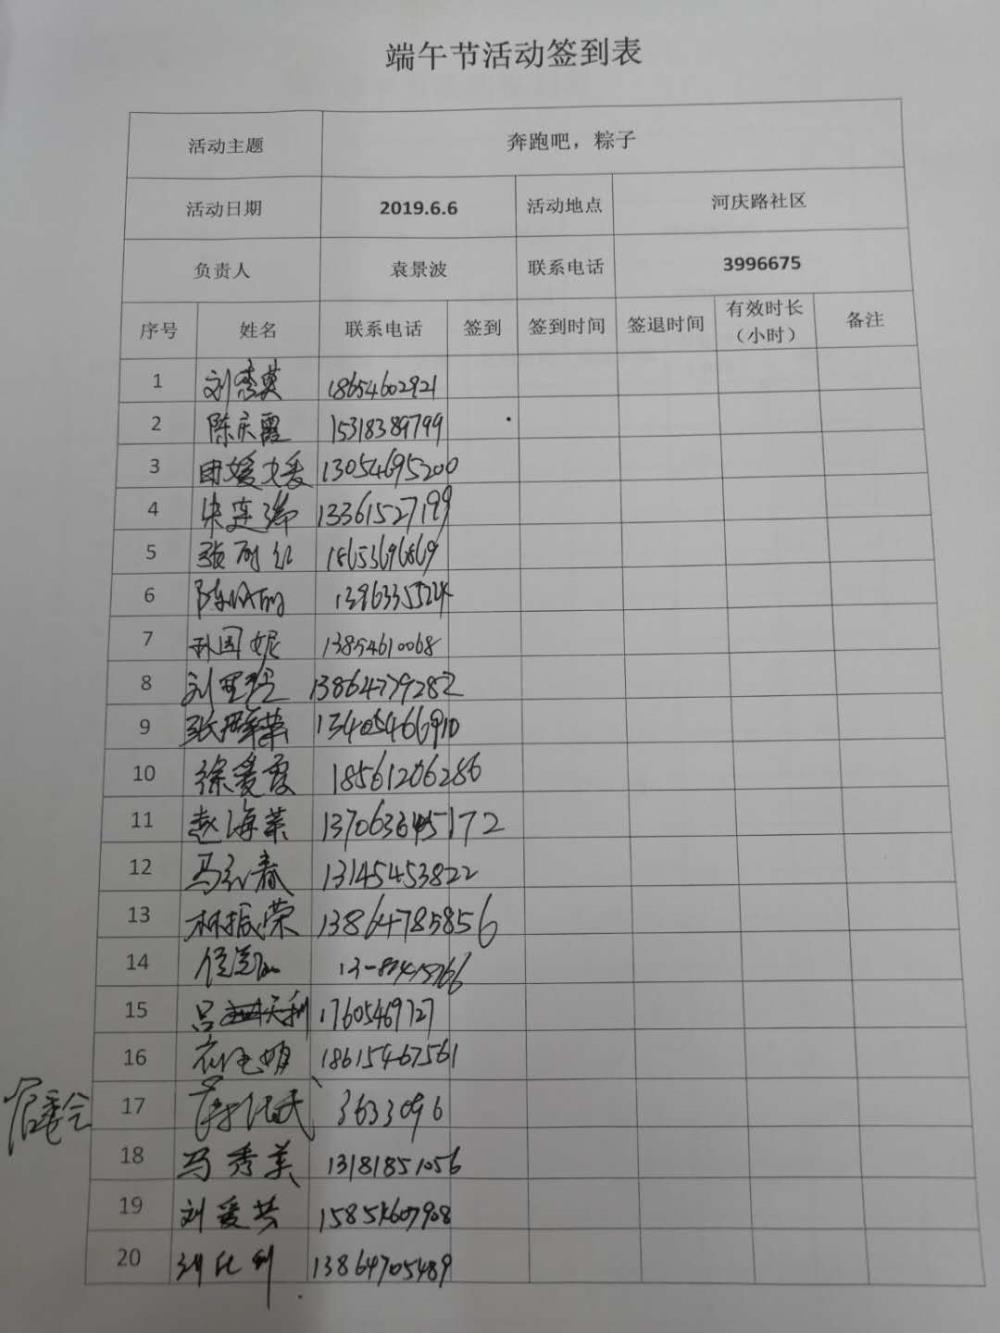 端午节活动签到表
活动主题 奔跑吧，粽子
活动日期 2019.6.6 活动地点 河庆路社区
负责人 袁景波 联系电话 3996675
序号 姓名 联系电话 签到 签到时间 签退时间 有效时长（小时） 备注
1 刘秀英 18654602921
2 陈庆霞 15318389799
3 13054695200
4 宋连瑞 13361527199
5 张 18653696869
6 陈 13963355224
7 孙国妮 13854610068
8 刘 13864779282
9 张 荣 13405466910
10 徐爱霞 18561206286
11 赵海英 172
12 马红春 13145453822
13 林振荣 13864785856
14
15 吕 利 17605469727
16 娟 18615467561
居委会 17 3633096
18 马秀美 13181851056
19 刘爱芸
20 利 13864705489